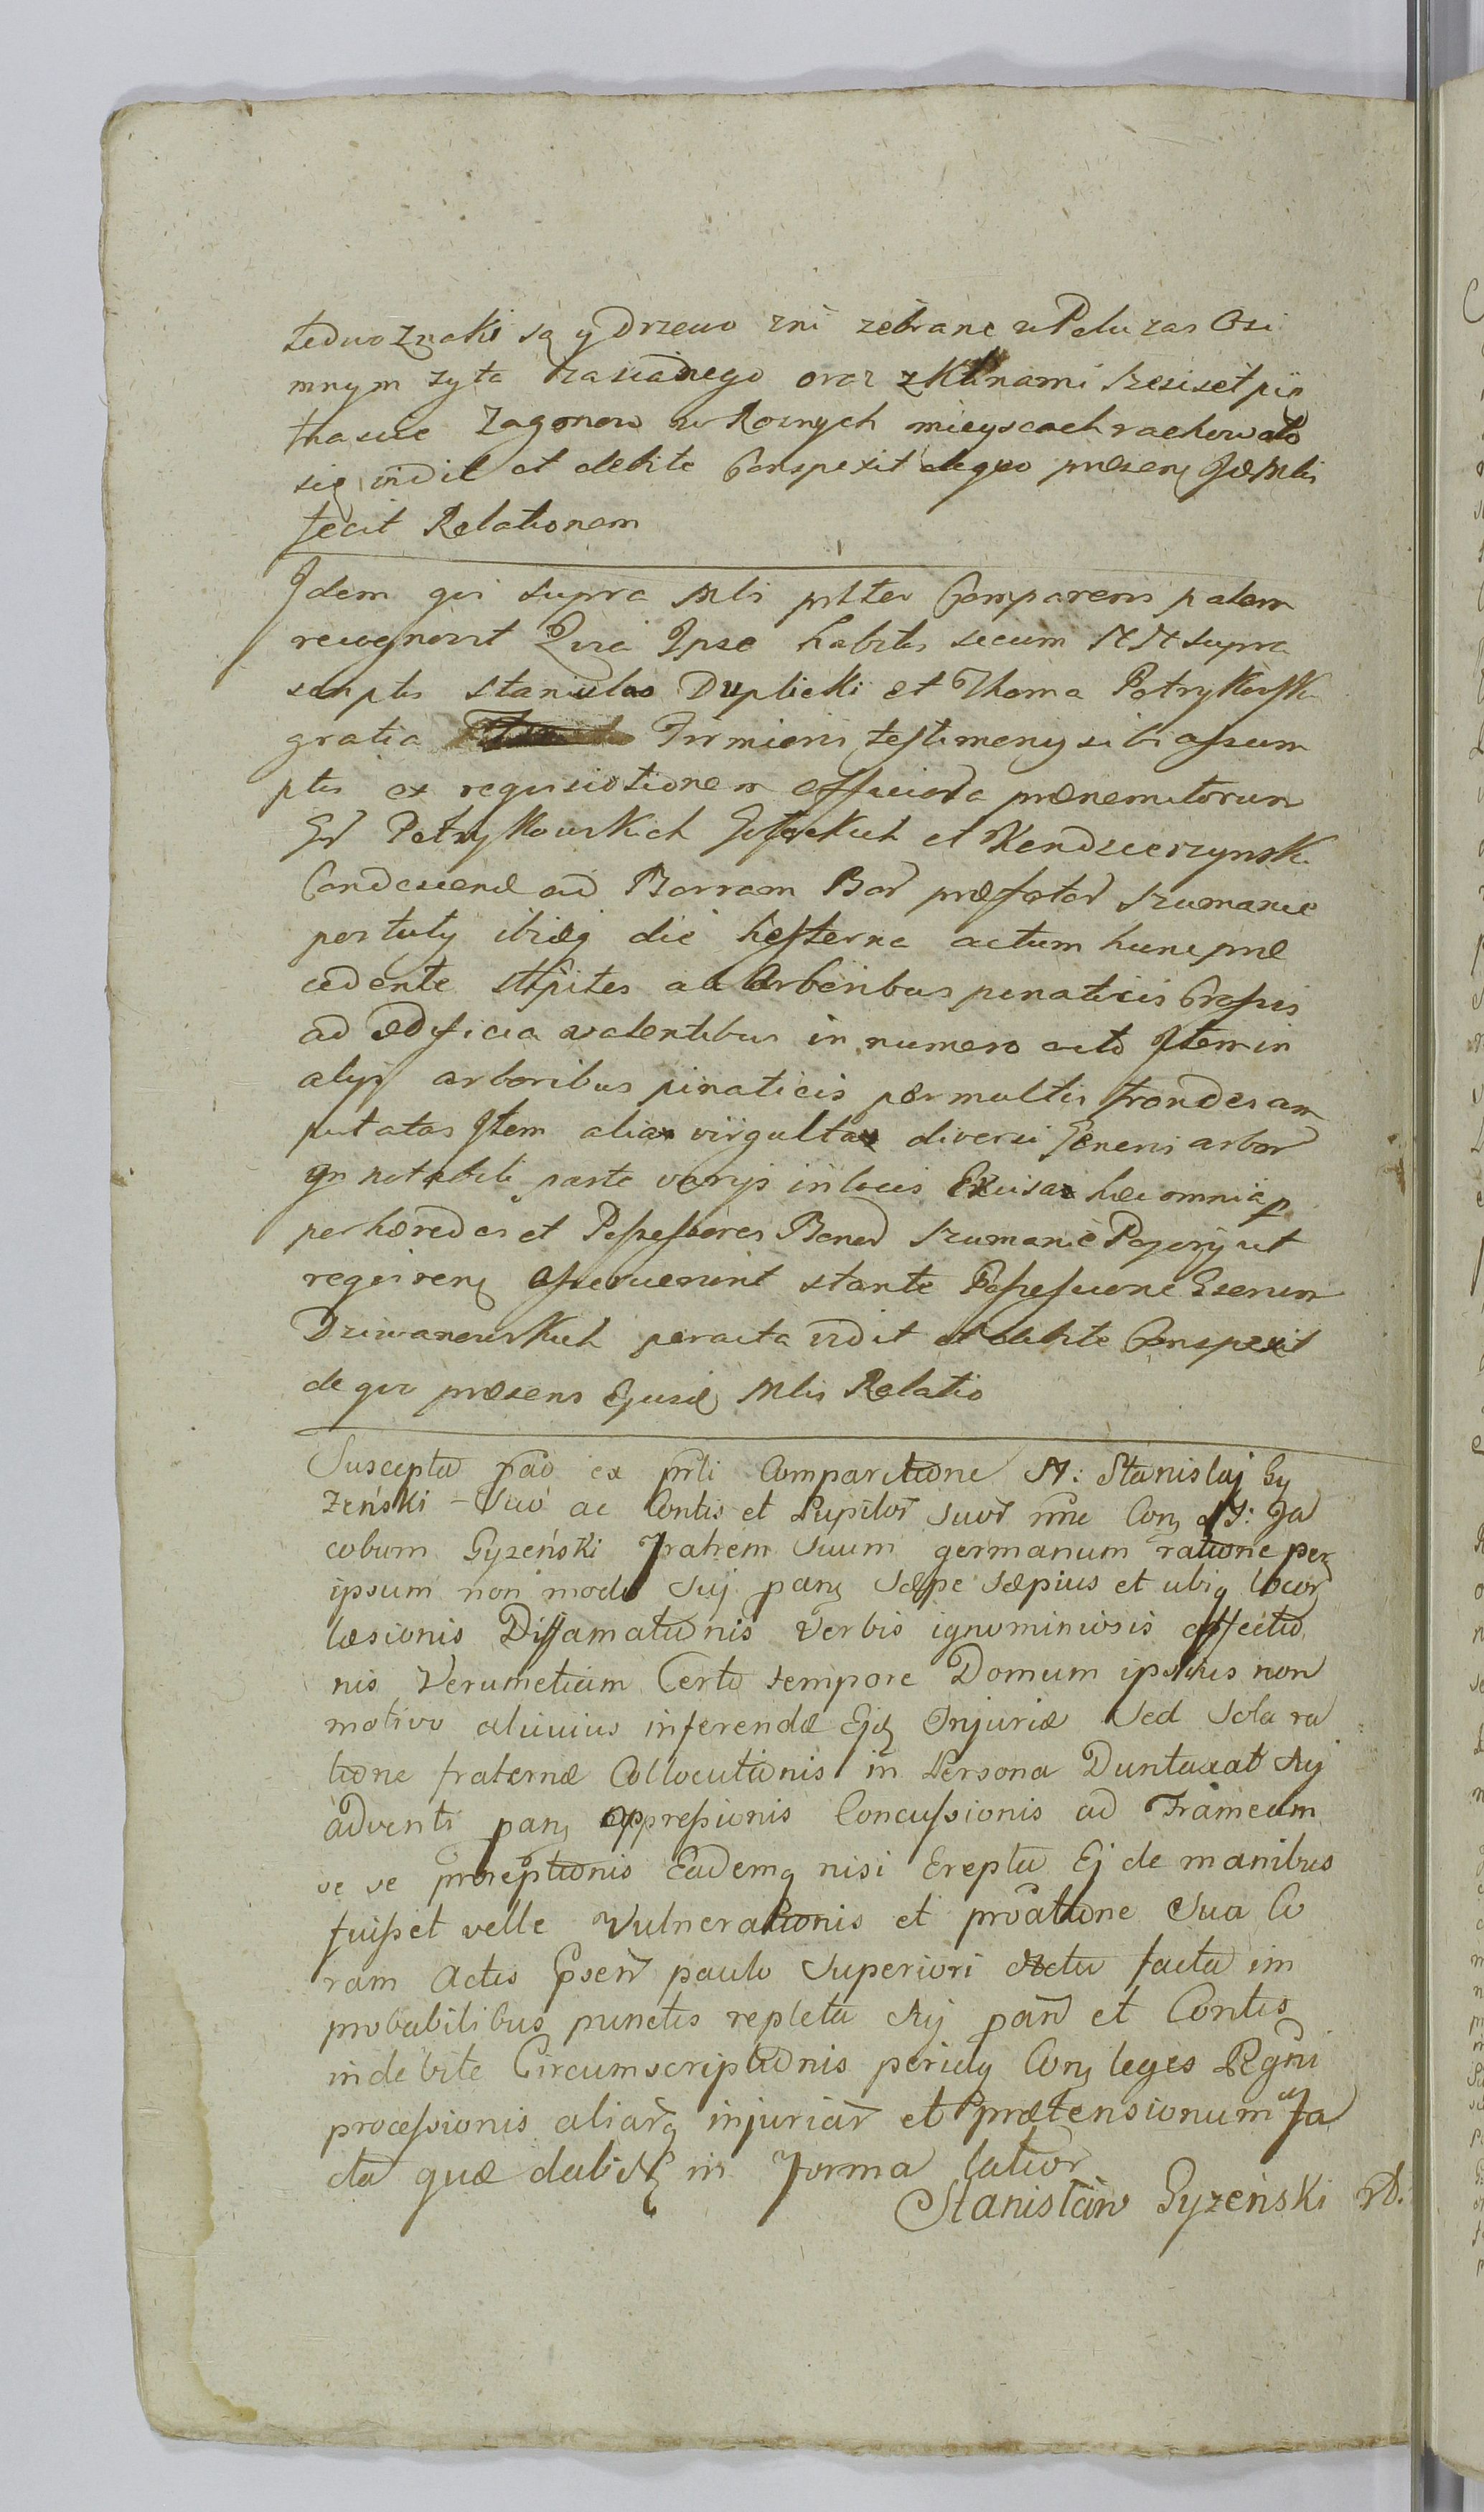 ledwo Znaki są y Drzewo zni zebrane w Polu zas Ozi
mnym zyta zasianego oraz z Klinami szescset pię
tnascie Zagonow w Roznych mieyscach rachowało
się vidit et debite Conspexit de quo præsens Mlis
fecit Relationem
Idem qui supra Mlis plter Comparens palam
recognovit Quia Ipse habitis secum NN supra
scriptis Stanislao Duplicki et Thoma Petrykowsk
gratia Firmioris testimonij sibi assum
ptis ex requisitione officiosa prænomitorum
Gd Petrykowskich et Kendzierzynsk
Condescend ad Borram Bor præfator Szumanie
pertuty ibidq die hesterna actum hunc præ
cedente stipites ab Arboribus pinaticis Crassis
ad ædificia valentibus in numero octo Item in
alijs arboribus pinaticis permultis frondes am
putatas Item alia virgulta diversi Generis arbor
in notabili parte varijs in locis Excisa hæc omnia p
per hæredes et Possessores Bonor Szumanie Pogorz ut
requirens asseruerunt stante Possessione Gserum
Dziwanowskich peracta vidit et debite Conspexit
de quo præsens Ejusd Mlis Relatio
Suscepta pao ex prli Comparitione N: Stanislaj Gy
zeński – Suo ac Contis et Pupilor suor nne Con N: Ja
cobum Gyzeński Fratrem Suum germanum ratione per
ipsum non modo Aij parn Sæpe Sæpius et ubiq locor
læsionis Diffamationis Verbis ignominiosis affectio
nis Verumetiam Certo tempore Domum ipsius non
motivo alicuius inferendæ Ejd Injuriæ Sed Sola ra
tione fraternæ Collocutionis in Persona Duntaxat Aij
adventi parn oppressionis Concussionis ad Frameam
se se proreptionis Eademq nisi Erepta Ej de manibus
fuisset velle Vulnerationis et proatione Sua Co
ram Actis Psen paulo Superiori Actu facta im
probabilibus punctis repleta Aij parn et Contis
indebite Circumscriptionis pericly Con leges Regni
processionis aliarq injuriar et prætensionum Ja
cta quæ dabit in Forma latior
Stanisław Gyzeński